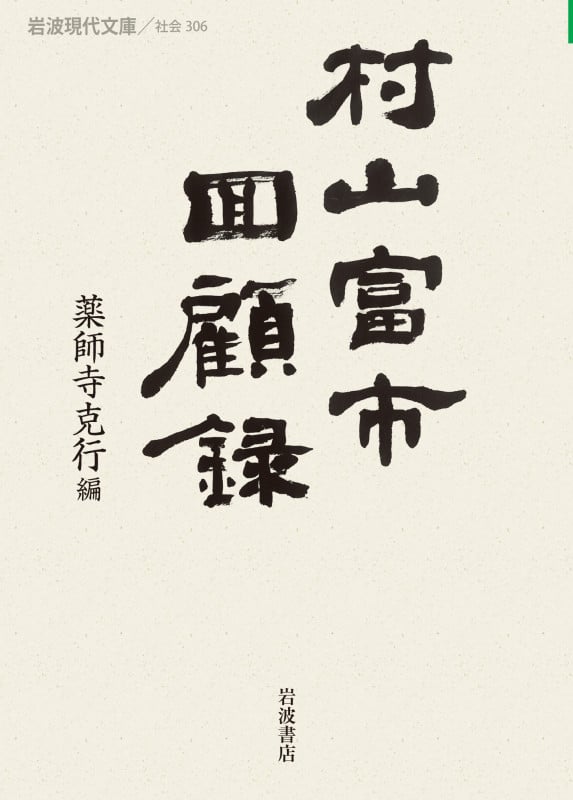 岩波現代文庫／社会 306
村山富市
回顧録
薬師寺克行 編
岩波書店